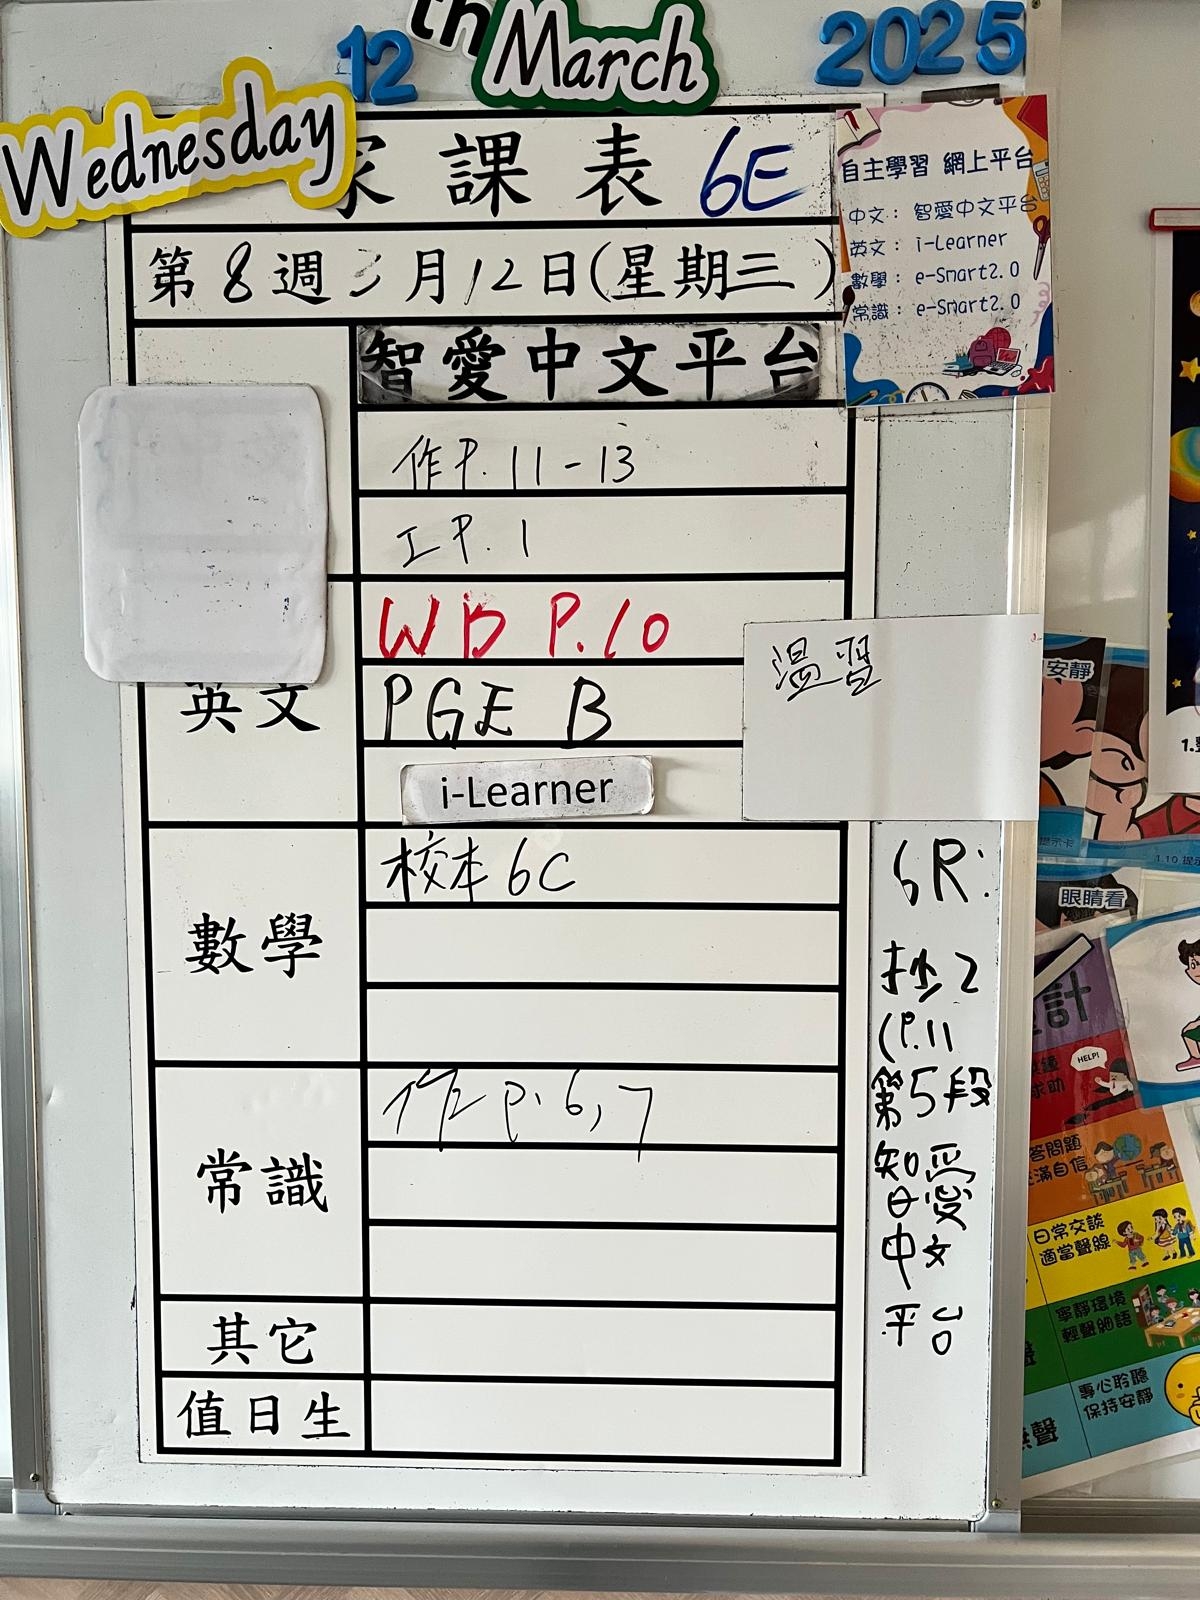 Wednesday 12th March 2025
家課表 6E
第8週3月12日(星期三)
自主學習 網上平台
中文：智愛中文平台
英文：i-Learner
數學：e-Smart2.0
常識：e-Smart2.0
智愛中文平台
作 P. 11-13
工 P. 1
英文
WB P.10
PGE B
i-Learner
溫習
數學
校本 6C
常識
作 P. 6, 7
其它
值日生
6R:
抄2
(P.11
第5段
智愛
中文
平台
安靜
提示卡
1.10 提示
眼睛看
計
HELP!
求助
答問題
滿自信
日常交談
適當聲線
寧靜環境
輕聲細語
專心聆聽
保持安靜
無聲